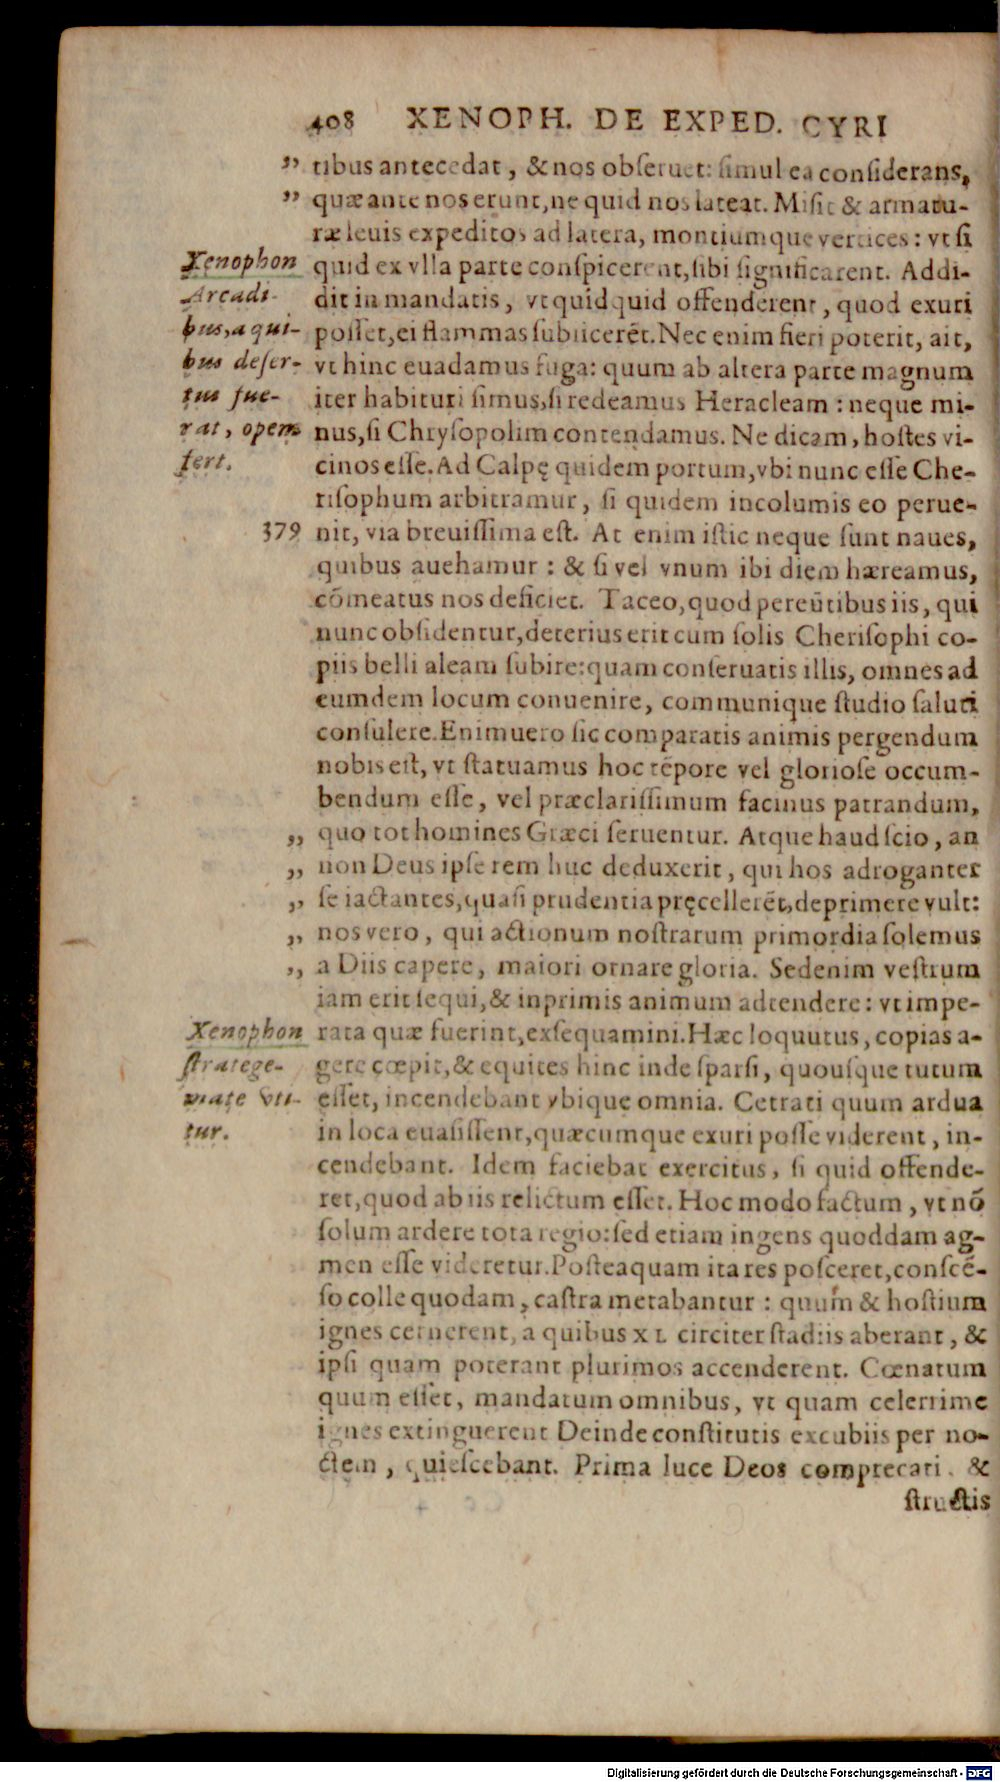 408 XENOPH. DE EXPED. CYRI
„ tibus antecedat, & nos obſeruet: ſimul ea conſiderans,
„ quæ ante nos erunt, ne quid nos lateat. Miſit & armatu-
ræ leuis expeditos ad latera, montiumque vertices: vt ſi
quid ex vlla parte conſpicerent, ſibi ſignificarent. Addi-
dit in mandatis, vt quidquid offenderent, quod exuri
poſſet, ei flammas ſubiicerēt. Nec enim fieri poterit, ait,
vt hinc euadamus fuga: quum ab altera parte magnum
iter habituri ſimus, ſi redeamus Heracleam: neque mi-
nus, ſi Chryſopolim contendamus. Ne dicam, hoſtes vi-
cinos eſſe. Ad Calpę quidem portum, vbi nunc eſſe Che-
riſophum arbitramur, ſi quidem incolumis eo perue-
nit, via breuiſſima eſt. At enim iſtic neque ſunt naues,
quibus auehamur: & ſi vel vnum ibi diem hæreamus,
cōmeatus nos deficiet. Taceo, quod pereūtibus iis, qui
nunc obſidentur, deterius erit cum ſolis Cheriſophi co-
piis belli aleam ſubire: quam conſeruatis illis, omnes ad
eumdem locum conuenire, communique ſtudio ſaluti
conſulere. Enimuero ſic comparatis animis pergendum
nobis eſt, vt ſtatuamus hoc tēpore vel glorioſe occum-
bendum eſſe, vel præclariſſimum facinus patrandum,
„ quo tot homines Græci ſeruentur. Atque haud ſcio, an
„ non Deus ipſe rem huc deduxerit, qui hos adroganter
„ ſe iactantes, quaſi prudentia pręcellerēt, deprimere vult:
„ nos vero, qui actionum noſtrarum primordia ſolemus
„ a Diis capere, maiori ornare gloria. Sed enim veſtrum
iam erit ſequi, & inprimis animum adtendere: vt impe-
rata quæ fuerint, exſequamini. Hæc loquutus, copias a-
gere cœpit, & equites hinc inde ſparſi, quouſque tutum
eſſet, incendebant vbique omnia. Cetrati quum ardua
in loca euaſiſſent, quæcumque exuri poſſe viderent, in-
cendebant. Idem faciebat exercitus, ſi quid offende-
ret, quod ab iis relictum eſſet. Hoc modo factum, vt nō
ſolum ardere tota regio: ſed etiam ingens quoddam ag-
men eſſe videretur. Poſteaquam ita res poſceret, conſcē-
ſo colle quodam, caſtra metabantur: quum & hoſtium
ignes cernerent, a quibus XL circiter ſtadiis aberant, &
ipſi quam poterant plurimos accenderent. Cœnatum
quum eſſet, mandatum omnibus, vt quam celerrime
ignes extinguerent Deinde conſtitutis excubiis per no-
ctem, quieſcebant. Prima luce Deos comprecati. &
ſtructis
Xenophon
Arcadi-
bus, a qui-
bus deſer-
tus fue-
rat, opem
fert.
379
Xenophon
ſtratege-
mate vti-
tur.
Digitalisierung gefördert durch die Deutsche Forschungsgemeinschaft - DFG